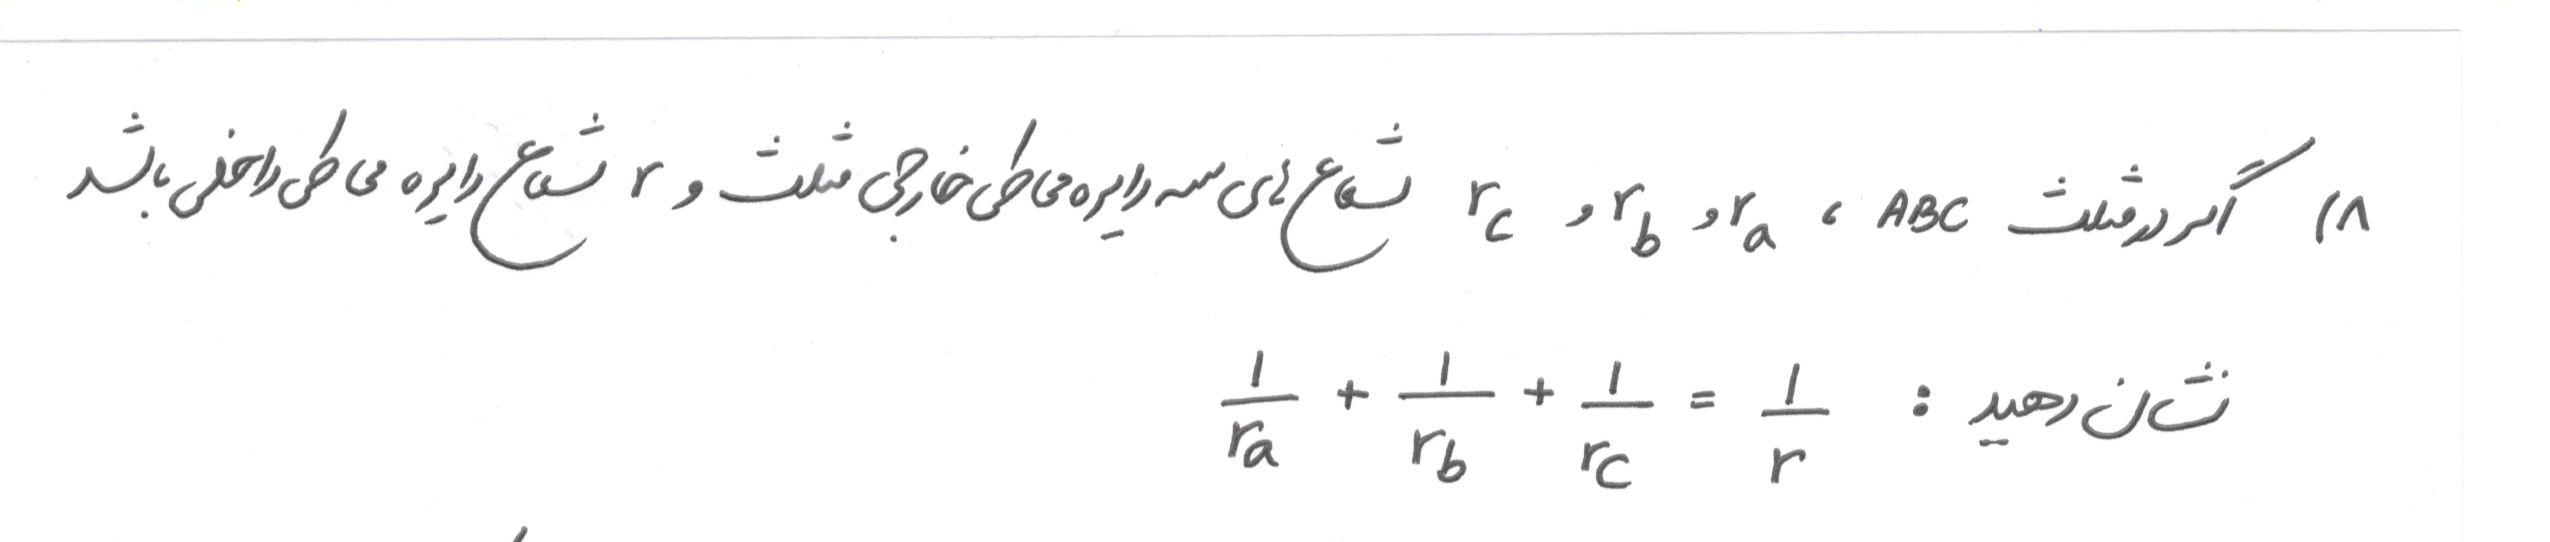 ۸) اگر در مثلث ABC ، ra و rb و rc شعاع های سه دایره محاطی خارجی مثلث و r شعاع دایره محاطی داخلی باشد
نشان دهید : 1/ra + 1/rb + 1/rc = 1/r